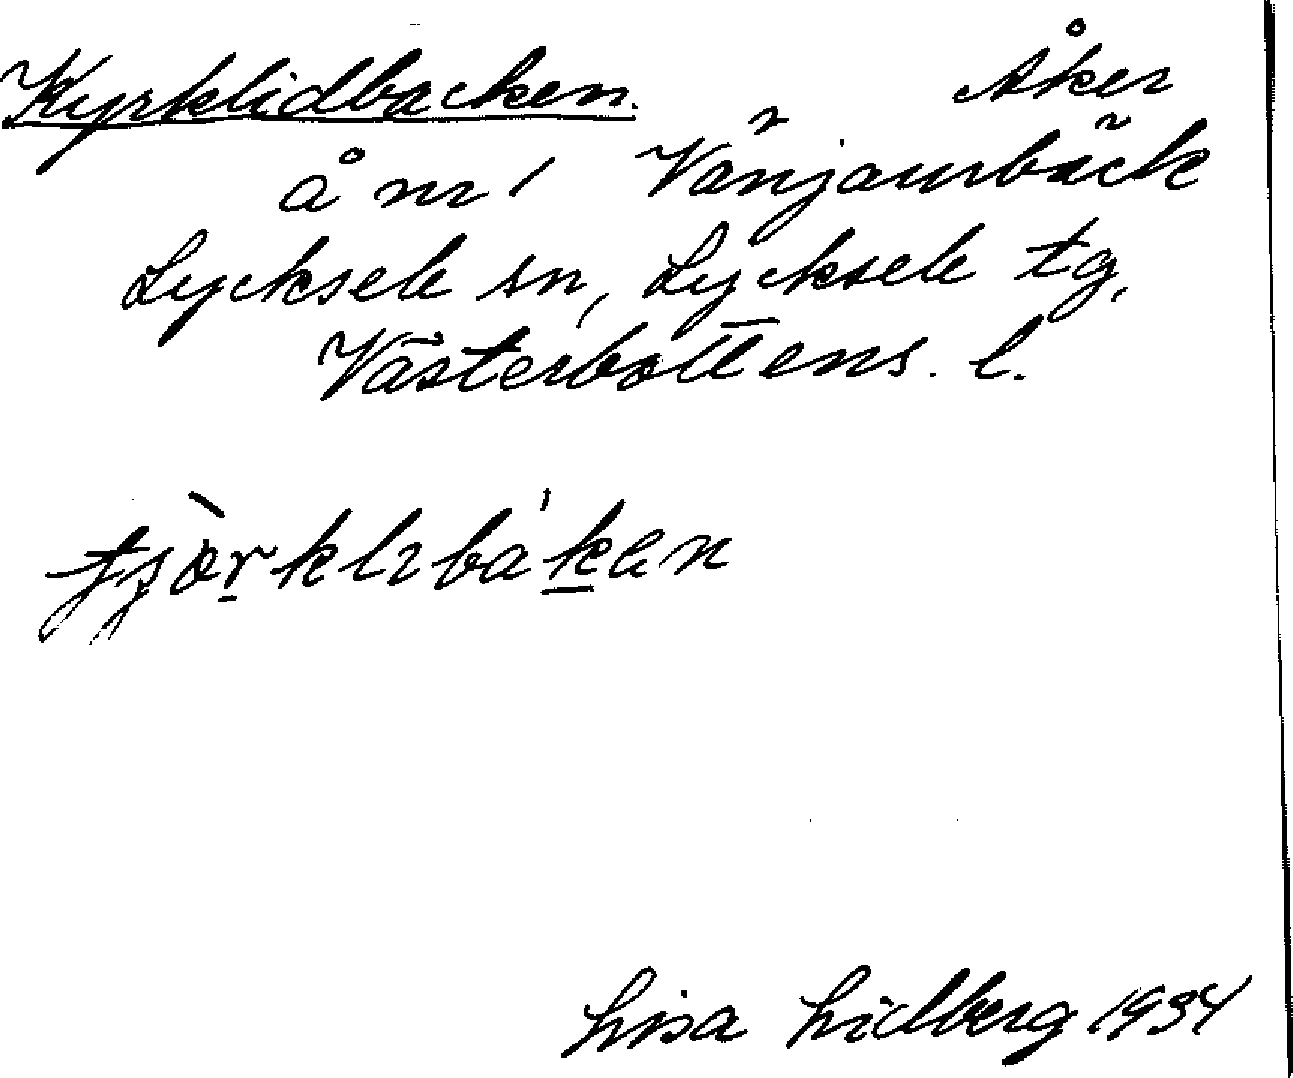 Kyrklidbacken. Åker
å nr 1 Vänjaurbäck
Lycksele sn, Lycksele tg,
Västerbottens. l.
tjòrklıbáken
Lisa Lidberg 1934